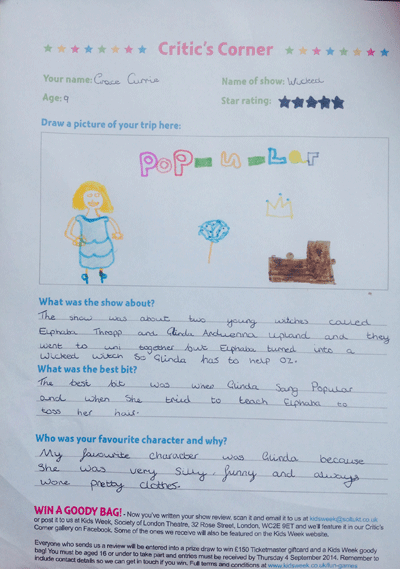 Critic's Corner
Your name: Grace Currie Name of show: Wicked
Age: 9 Star rating:
Draw a picture of your trip here:
POP-U-LAr
What was the show about?
The show was about two young witches called
Elphaba Thropp and Glinda Upland and they
went to uni together but Elphaba turned into a
Wicked Witch So Glinda has to help Oz.
What was the best bit?
The best bit was when Glinda Sang Popular
and when She tried to teach Elphaba to
toss her hair.
Who was your favourite character and why?
My favourite character was Glinda because
She was very Silly, funny and always
wore pretty clothes.
WIN A GOODY BAG! - Now you've written your show review, scan it and email it to us at kidsweek@solt.co.uk
or post it to us at Kids Week, Society of London Theatre, 32 Rose Street, London, WC2E 9ET and we'll feature it in our Critic's
Corner gallery on Facebook. Some of the ones we receive will also be featured on the Kids Week website.
Everyone who sends us a review will be entered into a prize draw to win £150 Ticketmaster giftcard and a Kids Week goody
bag! You must be aged 16 or under to take part and entries must be received by Thursday 4 September 2014. Remember to
include contact details so we can get in touch if you win. Full terms and conditions at www.kidsweek.co.uk/fun-games